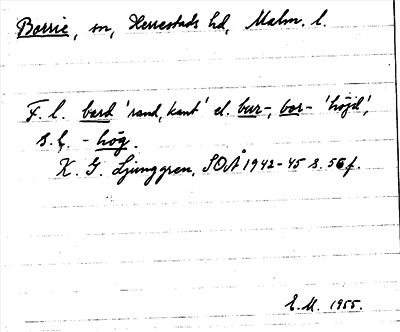 Borrie, sn, Herrestads hd, Malm. l.
F. l. bard 'rand, kant' el. bur-, bor- 'höjd',
s. l. - hög.
K. G. Ljunggren, SOÅ 1942-45 s. 56 f.
E. M. 1955.